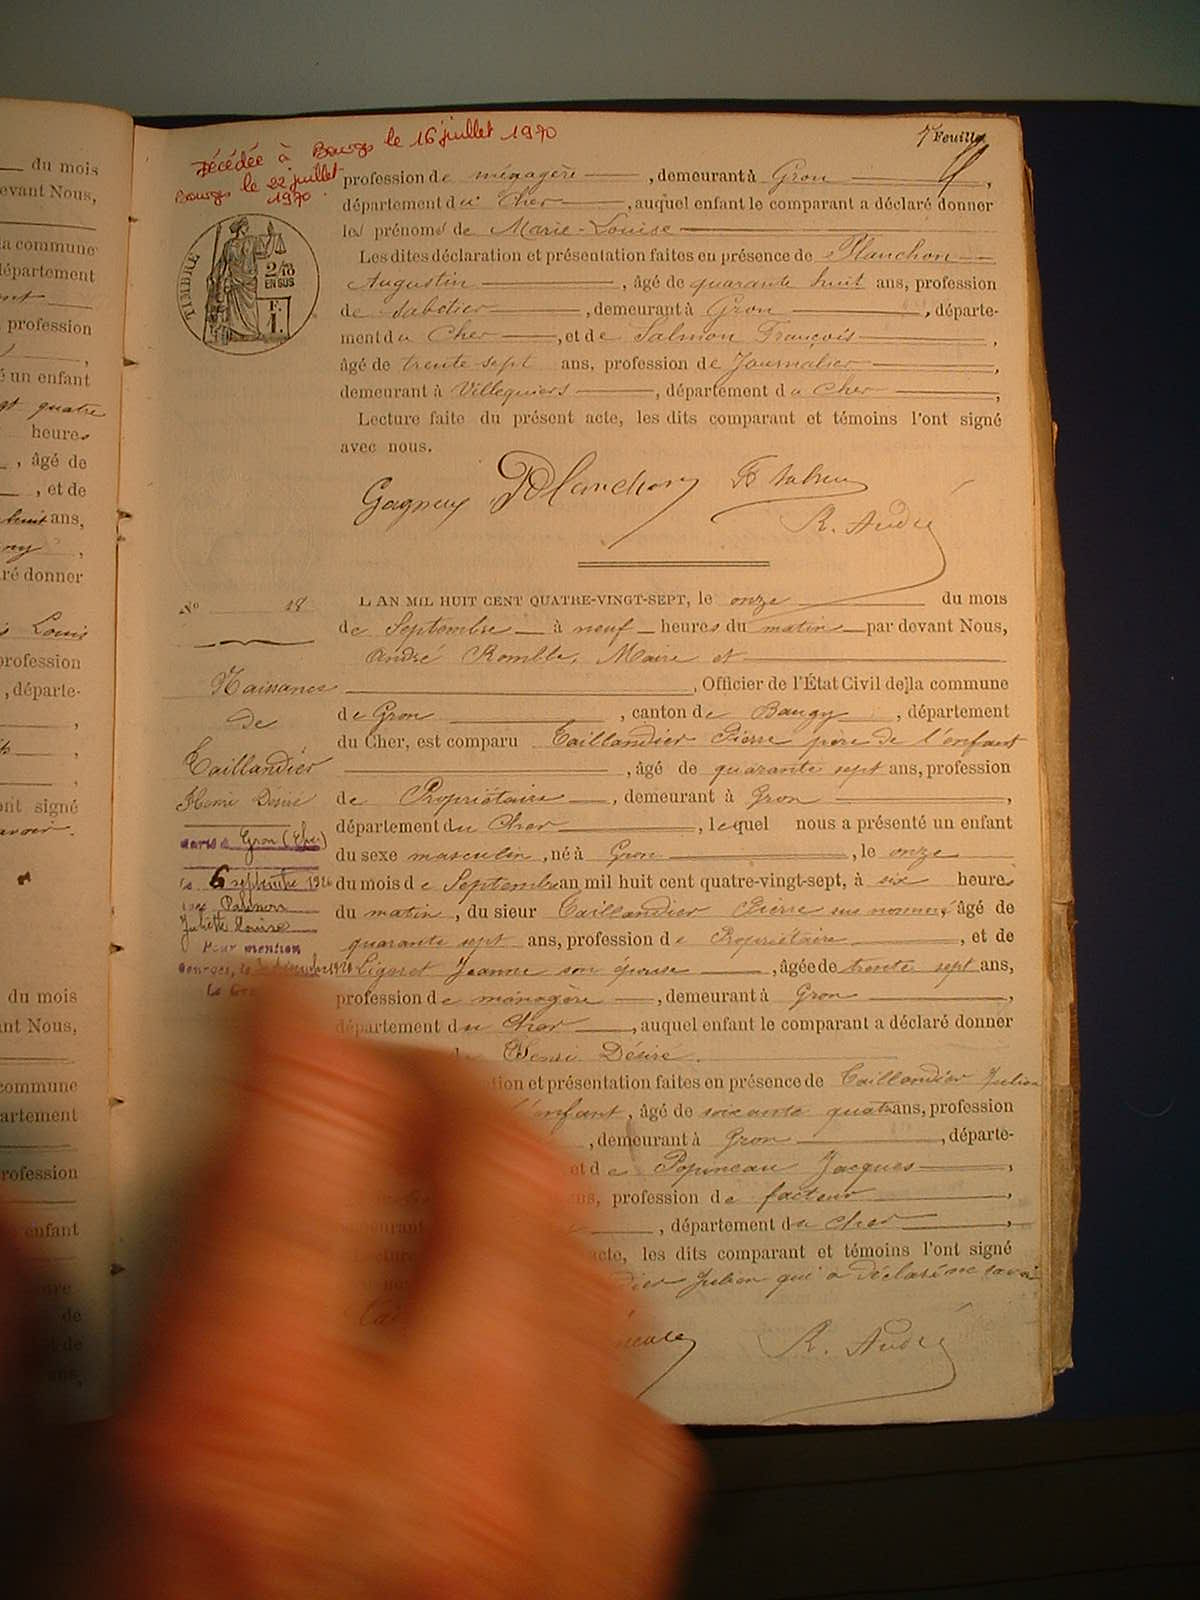 du mois
evant Nous,
la commune
département
profession
é un enfant
gt quatre
heures
, âgé de
, et de
huit ans,
ré donner
Louis
profession
, départe-
ont signé
du mois
nt Nous,
commune
artement
rofession
enfant
de
Décédée à Bourges le 16 juillet 1970
Bourges le 22 juillet
1970
7e Feuille
TIMBRE
2/10
EN SUS
F.
1.
profession de ménagère, demeurant à Gron,
département du Cher, auquel enfant le comparant a déclaré donner
les prénoms de Marie-Louise
Les dites déclaration et présentation faites en présence de Planchon
Augustin, âgé de quarante huit ans, profession
de Sabotier, demeurant à Gron, départe-
ment du Cher, et de Salmon François,
âgé de trente sept ans, profession de Journalier,
demeurant à Villequiers, département du Cher,
Lecture faite du présent acte, les dits comparant et témoins l'ont signé
avec nous.
Gagneux Planchon
R. André
No 18
L'AN MIL HUIT CENT QUATRE-VINGT-SEPT, le onze du mois
de Septembre à neuf heures du matin par devant Nous,
André Romble, Maire et
, Officier de l'État Civil de la commune
de Gron, canton de Baugy, département
du Cher, est comparu Taillandier Pierre père de l'enfant
, âgé de quarante sept ans, profession
de Propriétaire, demeurant à Gron,
département du Cher, lequel nous a présenté un enfant
du sexe masculin, né à Gron, le onze
du mois de Septembre an mil huit cent quatre-vingt-sept, à six heures
du matin, du sieur Taillandier Pierre sus nommé, âgé de
quarante sept ans, profession de Propriétaire, et de
Lignet Jeanne son épouse, âgée de trente sept ans,
profession de ménagère, demeurant à Gron,
département du Cher, auquel enfant le comparant a déclaré donner
Henri Désiré.
tion et présentation faites en présence de Taillandier Julien
l'enfant, âgé de soixante quatre ans, profession
, demeurant à Gron, départe-
et de Popineau Jacques,
ans, profession de facteur,
, département du Cher,
acte, les dits comparant et témoins l'ont signé
dier Julien qui a déclaré ne savoir
R. André
Naissance
de
Taillandier
Henri Désiré
marié à Gron (Cher)
le 6 septembre 1926
avec
Juliette Louise
Pour mention